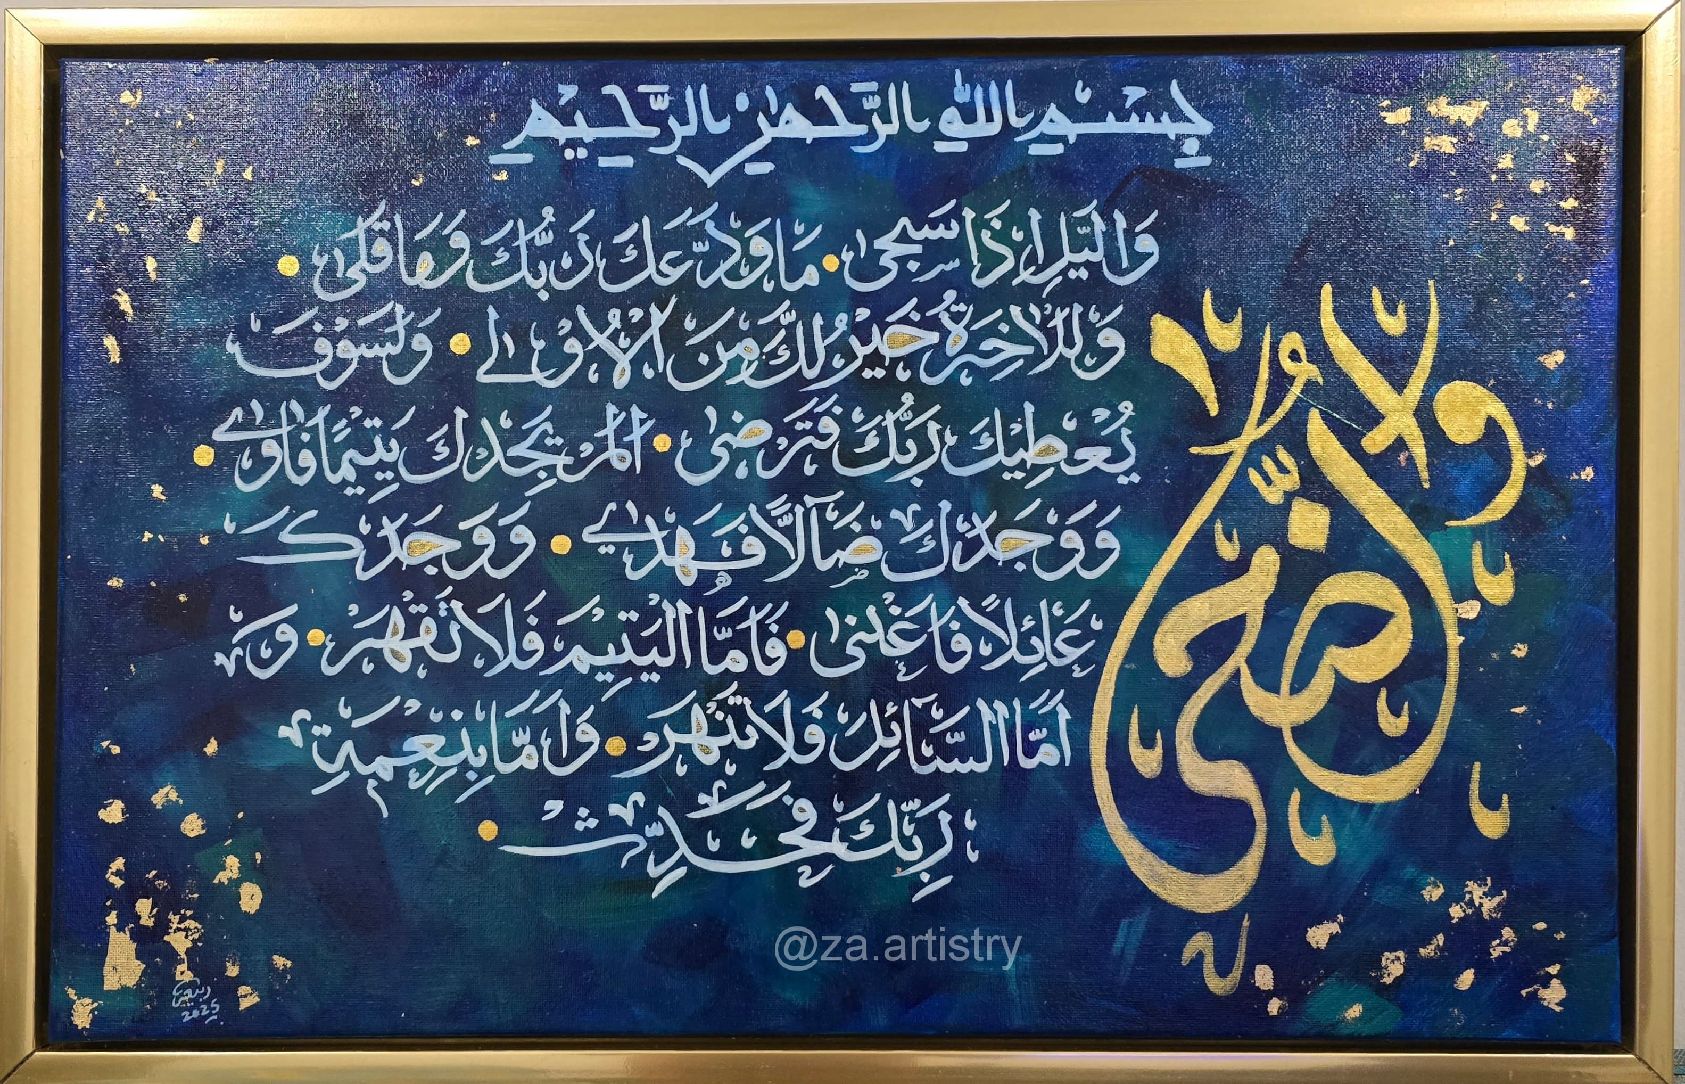 بِسْمِ اللهِ الرَّحْمٰنِ الرَّحِيْمِ
وَالضُّحٰى
وَالَّيْلِ اِذَا سَجٰى • مَا وَدَّعَكَ رَبُّكَ وَمَا قَلٰى •
وَلَلْاٰخِرَةُ خَيْرٌ لَّكَ مِنَ الْاُوْلٰى • وَلَسَوْفَ
يُعْطِيْكَ رَبُّكَ فَتَرْضٰى • اَلَمْ يَجِدْكَ يَتِيْمًا فَاٰوٰى •
وَوَجَدَكَ ضَآلًّا فَهَدٰى • وَوَجَدَكَ
عَائِلًا فَاَغْنٰى • فَاَمَّا الْيَتِيْمَ فَلَا تَقْهَرْ • وَ
اَمَّا السَّآئِلَ فَلَا تَنْهَرْ • وَاَمَّا بِنِعْمَةِ
رَبِّكَ فَحَدِّثْ •
@za.artistry
2025